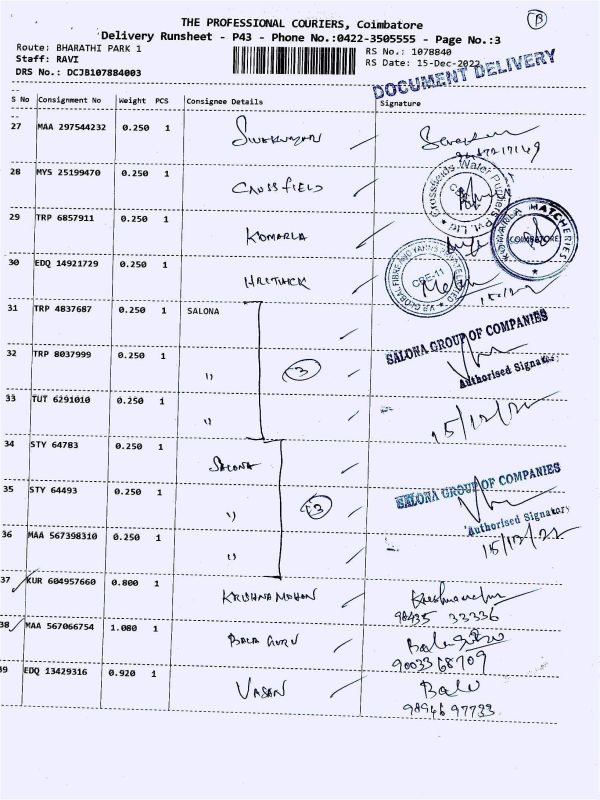 B
THE PROFESSIONAL COURIERS, Coimbatore
Delivery Runsheet - P43 - Phone No.:0422-3505555 - Page No.:3
Route: BHARATHI PARK 1
RS No.: 1078840
Staff: RAVI
RS Date: 15-Dec-2022
DRS No.: DCJB107884003
DOCUMENT DELIVERY
S No Consignment No Weight PCS Consignee Details Signature
27 MAA 297544232 0.250 1
28 MYS 25199470 0.250 1 CROSSFIELD
Crossfields Water Purifiers Pvt. Ltd
29 TRP 6857911 0.250 1 KOMARLA
KOMARLA HATCHERIES
COIMBATORE
30 EDQ 14921729 0.250 1 HRITHICK
CBE-11
31 TRP 4837687 0.250 1 SALONA
SALONA GROUP OF COMPANIES
32 TRP 8037999 0.250 1 " 3
Authorised Signatory
33 TUT 6291010 0.250 1 "
15/12/22
34 STY 64783 0.250 1 SALONA
SALONA GROUP OF COMPANIES
35 STY 64493 0.250 1 " 3
Authorised Signatory
36 MAA 567398310 0.250 1 "
15/12/22
37 KUR 604957660 0.800 1 KRISHNA MOHAN
98435 33336
38 MAA 567066754 1.080 1 BALA GURU
9003368709
39 EDQ 13429316 0.920 1 VASAN Balu
98946 97733